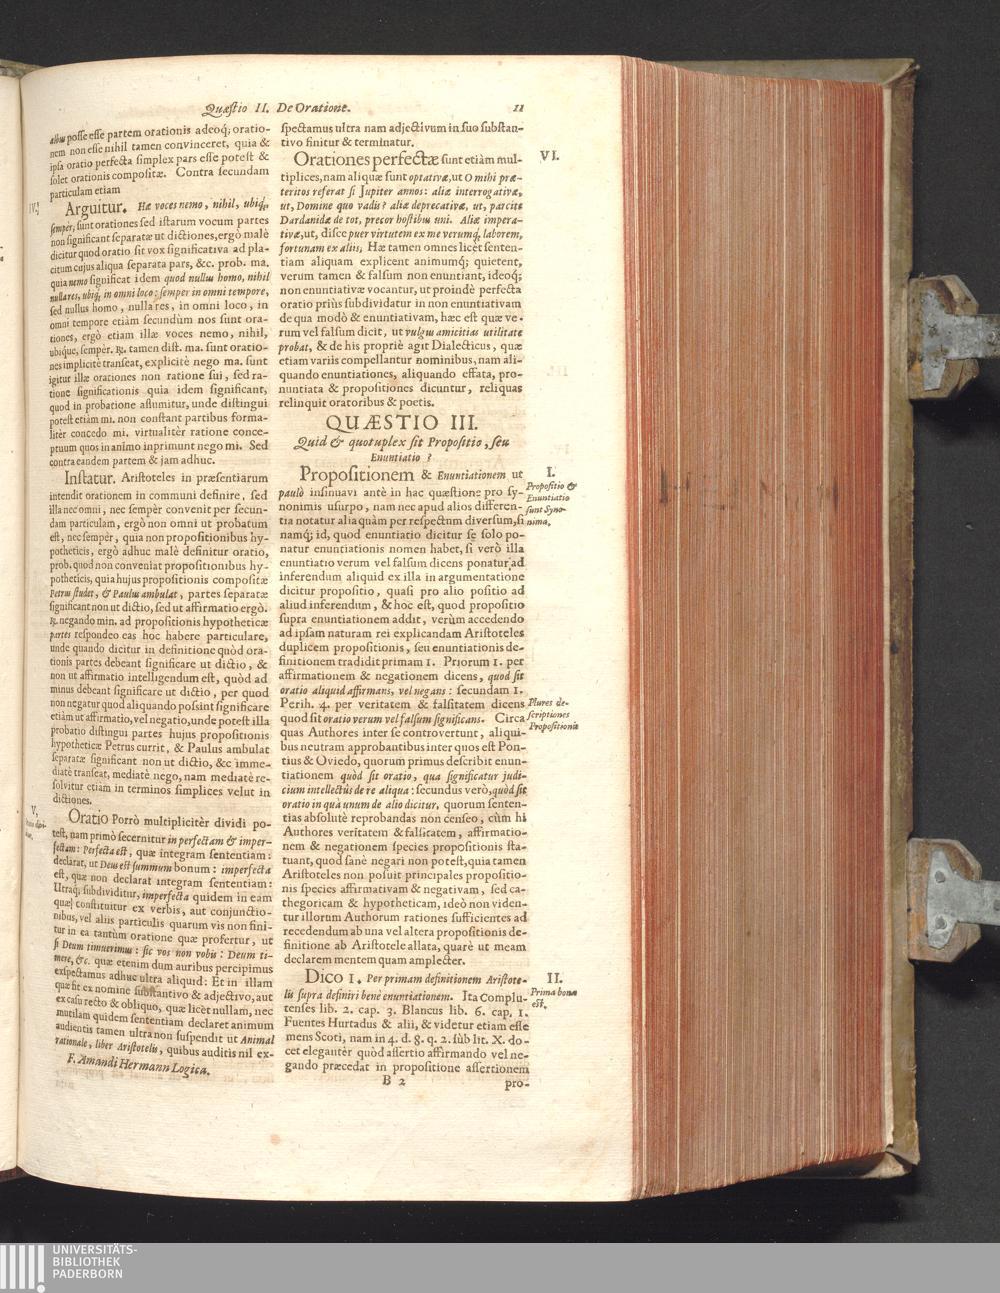 Quæſtio II. De Oratione. 11
albus poſſe eſſe partem orationis adeoq; oratio-
nem non eſſe nihil tamen convinceret, quia &
ipſa oratio perfecta ſimplex pars eſſe poteſt &
ſolet orationis compoſitæ. Contra ſecundam
particulam etiam
IV.
Arguitur. Hæ voces nemo, nihil, ubiq;,
ſemper, ſunt orationes ſed iſtarum vocum partes
non ſignificant ſeparatæ ut dictiones, ergò malè
dicitur quod oratio ſit vox ſignificativa ad pla-
citum cujus aliqua ſeparata pars, &c. prob. ma.
quia nemo ſignificat idem quod nullus homo, nihil
nulla res, ubiq; in omni loco: ſemper in omni tempore,
ſed nullus homo, nulla res, in omni loco, in
omni tempore etiàm ſecundùm nos ſunt ora-
tiones, ergò etiam illæ voces nemo, nihil,
ubique, ſempèr. ℞. tamen diſt. ma. ſunt oratio-
nes implicitè tranſeat, explicitè nego ma. ſunt
igitur illæ orationes non ratione ſui, ſed ra-
tione ſignificationis quia idem ſignificant,
quod in probatione aſſumitur, unde diſtingui
poteſt etiàm mi. non conſtant partibus forma-
litèr concedo mi. virtualitèr ratione conce-
ptuum quos in animo inprimunt nego mi. Sed
contra eandem partem & jam adhuc.
Inſtatur. Ariſtoteles in præſentiarum
intendit orationem in communi definire, ſed
illa nec omni, nec ſempèr convenit per ſecun-
dam particulam, ergò non omni ut probatum
eſt, nec ſempèr, quia non propoſitionibus hy-
potheticis, ergò adhuc malè definitur oratio,
prob. quod non conveniat propoſitionibus hy-
potheticis, quia hujus propoſitionis compoſitæ
Petrus ſtudet, & Paulus ambulat, partes ſeparatæ
ſignificant non ut dictio, ſed ut affirmatio ergò.
℞. negando min. ad propoſitionis hypotheticæ
partes reſpondeo eas hoc habere particulare,
unde quando dicitur in definitione quòd ora-
tionis partes debeant ſignificare ut dictio, &
non ut affirmatio intelligendum eſt, quòd ad
minus debeant ſignificare ut dictio, per quod
non negatur quod aliquando poſſint ſignificare
etiàm ut affirmatio, vel negatio, unde poteſt illa
probatio diſtingui partes hujus propoſitionis
hypotheticæ Petrus currit, & Paulus ambulat
ſeparatæ ſignificant non ut dictio, &c imme-
diatè tranſeat, mediatè nego, nam mediatè re-
ſolvitur etiàm in terminos ſimplices velut in
dictiones.
V.
Oratio Porrò multiplicitèr dividi po-
teſt, nam primò ſecernitur in perfectam & imper-
fectam: Perfecta eſt, quæ integram ſententiam:
declarat, ut Deus eſt ſummum bonum: imperfecta
eſt, quæ non declarat integram ſententiam:
Utraq; ſubdividitur, imperfecta quidem in eam
quæ conſtituitur ex verbis, aut conjunctio-
nibus, vel aliis particulis quarum vis non fini-
tur in ea tantùm oratione quæ profertur, ut
ſi Deum timuerimus: ſic vos non vobis: Deum ti-
mere, &c. quæ etenim dum auribus percipimus
exſpectamus adhuc ultra aliquid: Et in illam
quæ fit ex nomine ſubſtantivo & adjectivo, aut
ex caſu recto & obliquo, quæ licèt nullam, nec
mutilam quidem ſententiam declaret animum
audientis tamen ultra non ſuſpendit ut Animal
rationale, liber Ariſtotelis, quibus auditis nil ex-
F. Amandi Hermann Logica.
ſpectamus ultra nam adjectivum in ſuo ſubſtan-
tivo finitur & terminatur.
VI.
Orationes perfectæ ſunt etiàm mul-
tiplices, nam aliquæ ſunt optativæ, ut O mihi præ-
teritos referat ſi Jupiter annos: aliæ interrogativæ,
ut, Domine quo vadis? aliæ deprecativæ, ut, parcite
Dardanidæ de tot, precor hoſtibus uni. Aliæ impera-
tivæ, ut, diſce puer virtutem ex me verumq; laborem,
fortunam ex aliis, Hæ tamen omnes licèt ſenten-
tiam aliquam explicent animumq; quietent,
verum tamen & falſum non enuntiant, ideoq;
non enuntiativæ vocantur, ut proindè perfecta
oratio priùs ſubdividatur in non enuntiativam
de qua modò & enuntiativam, hæc eſt quæ ve-
rum vel falſum dicit, ut vulgus amicitias utilitate
probat, & de his propriè agit Dialecticus, quæ
etiam variis compellantur nominibus, nam ali-
quando enuntiationes, aliquando effata, pro-
nuntiata & propoſitiones dicuntur, reliquas
relinquit oratoribus & poetis.
QUÆSTIO III.
Quid & quotuplex ſit Propoſitio, ſeu
Enuntiatio?
I.
Propoſitio &
Enuntiatio
ſunt Syno-
nima.
Propoſitionem & Enuntiationem ut
paulò inſinuavi antè in hac quæſtione pro ſy-
nonimis uſurpo, nam nec apud alios differen-
tia notatur alia quàm per reſpectum diverſum, ſi
namq; id, quod enuntiatio dicitur ſe ſolo po-
natur enuntiationis nomen habet, ſi verò illa
enuntiatio verum vel falſum dicens ponatur ad
inferendum aliquid ex illa in argumentatione
dicitur propoſitio, quaſi pro alio poſitio ad
aliud inferendum, & hoc eſt, quod propoſitio
ſupra enuntiationem addit, verùm accedendo
ad ipſam naturam rei explicandam Ariſtoteles
duplicem propoſitionis, ſeu enuntiationis de-
finitionem tradidit primam 1. Priorum 1. per
affirmationem & negationem dicens, quod ſit
oratio aliquid affirmans, vel negans: ſecundam 1.
Perih. 4. per veritatem & falſitatem dicens
quod ſit oratio verum vel falſum ſignificans. Circa
Plures de-
ſcriptiones
Propoſitionis
quas Authores inter ſe controvertunt, aliqui-
bus neutram approbantibus inter quos eſt Pon-
tius & Oviedo, quorum primus deſcribit enun-
tiationem quòd ſit oratio, qua ſignificatur judi-
cium intellectûs de re aliqua: ſecundus verò, quòd ſit
oratio in quà unum de alio dicitur, quorum ſenten-
tias abſolutè reprobandas non cenſeo, cùm hi
Authores veritatem & falſitatem, affirmatio-
nem & negationem ſpecies propoſitionis ſta-
tuant, quod ſanè negari non poteſt, quia tamen
Ariſtoteles non poſuit principales propoſitio-
nis ſpecies affirmativam & negativam, ſed ca-
thegoricam & hypotheticam, ideò non viden-
tur illorum Authorum rationes ſufficientes ad
recedendum ab una vel altera propoſitionis de-
finitione ab Ariſtotele allata, quarè ut meam
declarem mentem quam amplecter.
II.
Prima bona
eſt.
Dico I. Per primam definitionem Ariſtote-
lis ſupra definiri benè enuntiationem. Ita Complu-
tenſes lib. 2. cap. 3. Blancus lib. 6. cap. 1.
Fuentes Hurtadus & alii, & videtur etiam eſſe
mens Scoti, nam in 4. d. 8. q. 2. ſùb lit. X. do-
cet elegantèr quòd aſſertio affirmando vel ne-
gando præcedat in propoſitione aſſertionem
B 2 pro-
UNIVERSITÄTS-
BIBLIOTHEK
PADERBORN